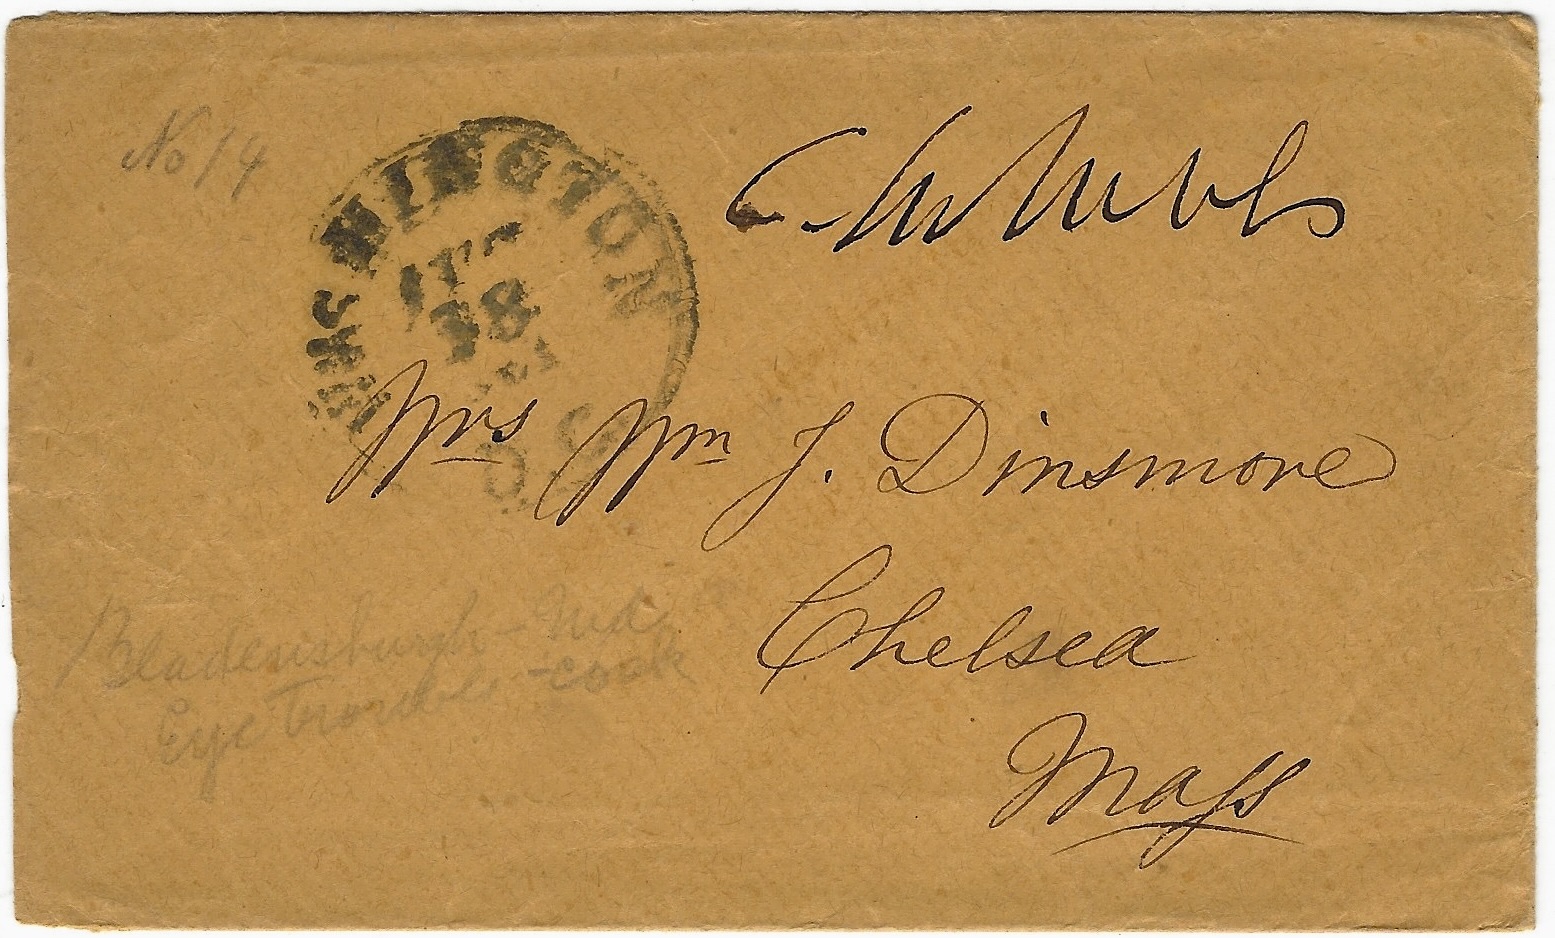 No 14
WASHINGTON
18
D.C.
Mrs Wm J. Dinsmore
Chelsea
Mass
Bladensburgh - Md
Eye Trouble - cook